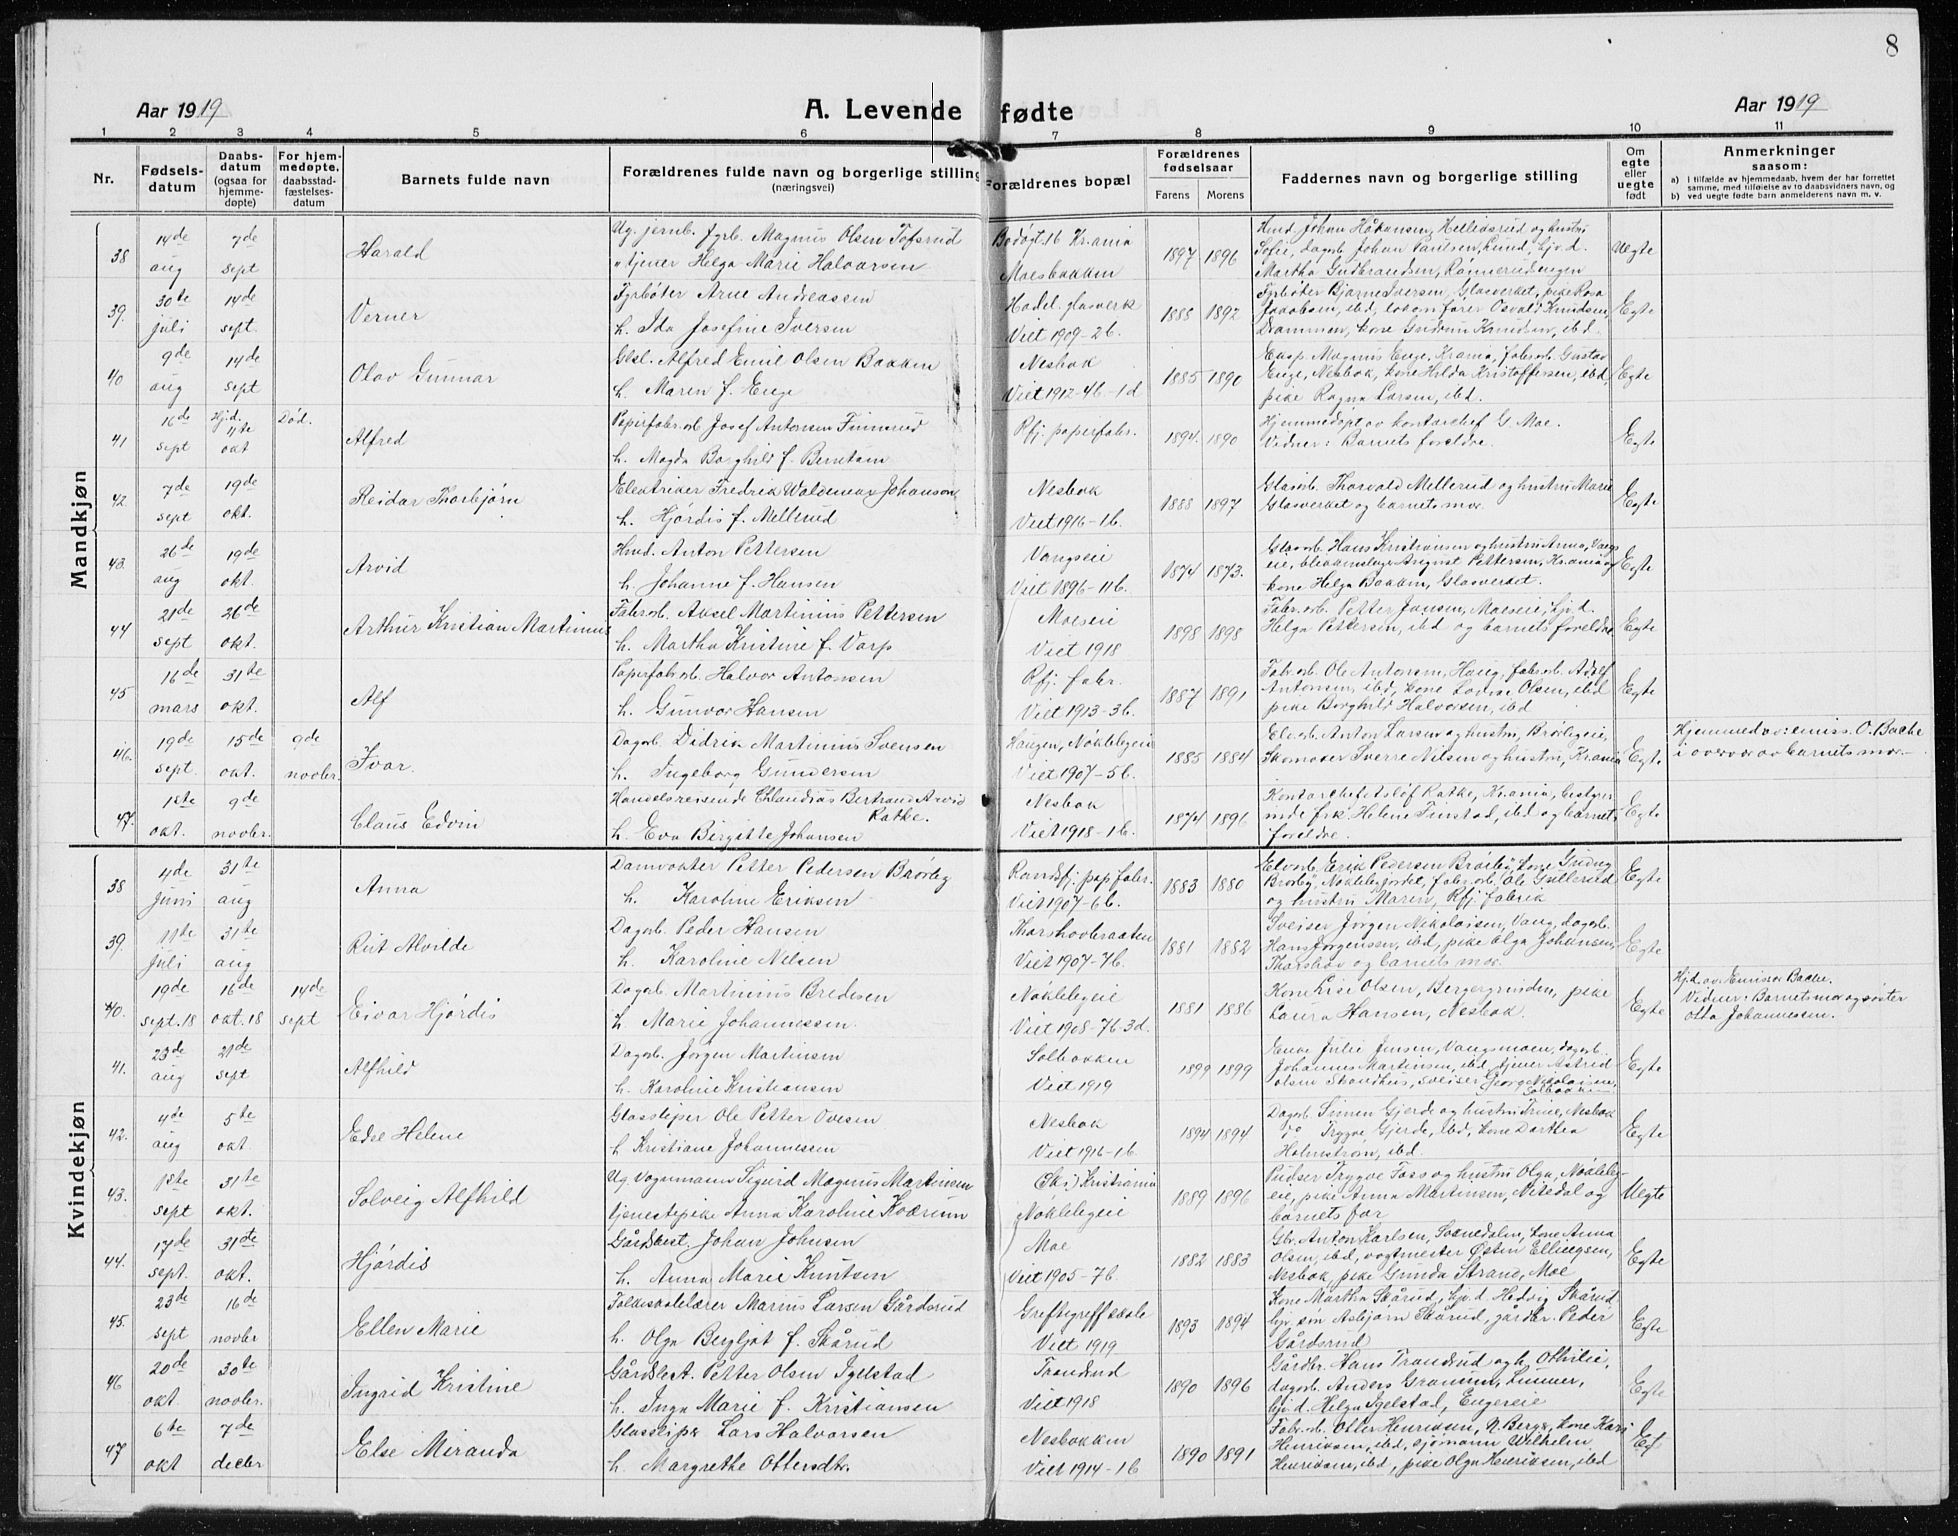 8
Aar 1919
A. Levende fødte
Aar 1919
1 2 3 4 5 6 7 8 9 10 11
Nr.
Fødsels-
datum
Daabs-
datum
(ogsaa for
hjemme-
døpte)
For hjem-
medøpte,
daabsstad-
fæstelses-
datum
Barnets fulde navn
Forældrenes fulde navn og borgerlige stilling
(næringsvei)
Forældrenes bopæl
Forældrenes
fødselsaar
Farens Morens
Faddernes navn og borgerlige stilling
Om
egte
eller
uegte
født
Anmerkninger
saasom:
a) i tilfælde av hjemmedaab, hvem der har forrettet
samme, med tilføielse av to daabsvidners navn, og
b) ved uegte fødte barn anmelderens navn m. v.
Mandkjøn
38 14de aug 7de sept Harald
Ug. jernb. fyrb. Magnus Olsen Tofsrud
" tjener Helga Marie Halvorsen
Bodøgt. 16 Krania
Moesbakken
1897 1896
Johan Håkensen, og hustru
Sofie, dagarb. Johan Paulsen, Lund, tjv. d.
Martha Gudbrandsen, Rønnerudengen
Uegte
39. 30te juli 14de sept. Verner
Fyrbøter Arne Andreassen
h. Ida Josefine Iversen
Hadel. glasverk
Viet 1909-2b.
1888 1892
Fyrbøter Bjarne Iversen, Glasverket, pike Rosa
Jakobsen, ibd, lokomfører Osvald Knudsen,
Drammen, kone Gudrun Knudsen, ibd.
Egte
40 9de aug 14de sept Olav Gunnar
Glsl. Alfred Emil Olsen Bakken
h. Maren f. Enge
Nesbak
Viet 1912-4b-1d
1885 1890
Eksp. Magnus Enge, Krania, fabr.arb. Gustav
Enge, Nesbak, kone Hilda Kristoffersen, ibd,
pike Ragna Larsen, ibd.
Egte
41 16de sept Hjd. 11te okt Død. Alfred
Papirfabr.arb. Josef Antonsen Finnerud
h. Magda Borghild f. Berntsen
Rfj. papirfabr.
1894. 1890
Hjemmedøpt av kontorchef G. Moe.
Vidner: Barnets foreldre.
Egte
42 7de sept 19de okt. Reidar Thorbjørn
Elektriker Fredrik Waldemar Johanson
h. Hjørdis f. Mellerud
Nesbak
Viet 1916-1b.
1888 1897
Glasarb. Thorvald Mellerud og hustru Marie
Glasverket og barnets mor.
Egte
43. 26de aug 19de okt. Arvid
Hmd. Anton Pettersen
h. Johanne f. Hansen
Vangseie
Viet 1896-11b.
1874 1873.
Glasarb. Hans Kristiansen og hustru Anna, Vangs
eie, blikkenslager August Pettersen, Krania og
kone Helga Bakken, Glasverket.
Egte
44 21de sept 26de okt. Arthur Kristian Martinius
Fabr.arb. Aksel Martinius Pettersen
h. Martha Kristine f. Varp
Moeseie
Viet 1918
1898 1898
Fabr.arb. Petter Jansen, Moeseie, tjv. d.
Helga Pettersen, ibd og barnets foreldre
Egte
45 16de mars 31te okt. Alf
Papirfabr.arb. Halvor Antonsen
h. Gunvor Hansen
Rfj. fabr.
Viet 1913-3b.
1887 1891
Fabr.arb. Ole Antonsen, Haug, fabr.arb. Adolf
Antonsen, ibd, kone Lovise Olsen, ibd
pike Borghild Halvorsen, ibd
Egte
46. 19de sept. 15de okt. 9de novbr. Ivar
Dagarb. Didrik Martinius Svensen
h. Ingeborg Gundersen
Haugen, Nøklebyeie
Viet 1907-5b.
1885 1884
Elvarb. Anton Larsen og hustru, Brørbyeie,
Skomaker Sverre Nilsen og hustru, Krania
Egte
Hjemmed av: emiss. O. Bache
i overvær av barnets mor.
47. 1ste okt. 9de novbr. Claus Edvin
Handelsreisende Chlaudius Bertrand Arvid
Ratke.
h. Eva Birgitte Johansen
Nesbak
Viet 1918-1b.
1874 1896
Kontorchef Ratke, Krania, bestyrer
inde frk. Helene Finstad, ibd og barnets
foreldre.
Egte
Kvindekjøn
38 4de juni 31te aug Anna
Damvokter Petter Pedersen Brørby
h. Karoline Eriksen
Randsfj. pap. fabr.
Viet 1907-6b.
1883 1880
Elvarb. Erik Pedersen Brørby, kone Gudny
Brørby, Nøklebyjordet, fabr.arb. Ole Gullerud
og hustru Maren, Rfj. fabrik
Egte
39. 11te Juli 31te aug Rut Alvilde
Dagarb. Peder Hansen
h. Karoline Nilsen
Thorshovbraaten
Viet 1907-7b.
1881 1882
Sveiser Jørgen Nikolaisen, Vang, dagarb.
Hans Jørgensen, ibd, pike Olga Johansen,
Thorshov og barnets mor.
Egte
40. 19de sept. 18 16de okt. 18 14de sept Eivar Hjørdis
Dagarb. Martinius Bredesen
h. Marie Johannessen.
Nøklebyeie
Viet 1908-7b-3d.
1881 1886
Kone Lise Olsen, Bergergrinden, pike
Laura Hansen, Nesbak.
Egte
Hjd. av Emissær Bache.
Vidner: Barnets mor og søster
Otta Johannessen.
41. 23de aug 21de sept Alfhild
Dagarb. Jørgen Martinsen
h. Karoline Kristiansen
Solbakken
Viet 1919
1899 1899
Enke Julie Jensen, Vangsmoen, dagarb.
Johannes Martinsen, ibd, tjener Astrid
Olsen Skardhus, sveiser Georg Nikolaisen,
Solbakken
Egte
42. 4de aug 5te okt. Edse Helene
Glassliper Ole Petter Ovesen
h Kristiane Johannessen
Nesbak
Viet 1916-1b.
1894 1894
Dagarb. Simen Gjerde og hustru Trine, Nesbak
do Trygve Gjerde, ibd, kone Dorthea
Holmstrøm, ibd.
Egte
43. 1ste sept 31te okt. Solveig Alfhild
Ug Vognmann Sigurd Magnus Martinsen
tjenestepike Anna Karoline Kværum
Kristiania
Nøklebyeie
1889 1896
Pudser Trygve Foss og hustru Olga, Nøkleby-
eie, pike Anna Martinsen, Nitedal og
barnets far
Uegte
44. 17de sept. 31de okt. Hjørdis
Gårdbest. Johan Johnsen
h. Anna Marie Knutsen
Moe
Viet 1905-7b.
1882 1883
Gbr. Anton Karlsen, Soknedalen, kone Anna
Olsen, ibd, vogtmester Østen Ellingsen,
Nesbak, pike Gunda Strand, Moe
Egte
45. 23de sept 16de novbr Ellen Marie
Folkeskolelærer Marius Larsen Gårdsrud
h. Olga Bergljot f. Skårud
Greftegreff skole
Viet 1919
1893 1894
Kone Martha Skårud, tjv. d. Hedvig Skårud
tjv. søn Asbjørn Skårud, gårdbr. Peder
Gårdsrud
Egte
46 20de okt 30te novbr. Ingrid Kristine
Gårdsbest. Petter Olsen Igelstad
h. Inga Marie f. Kristiansen
Trandrud
Viet 1918
1890 1896
Gårdbr. Hans Trandrud og h. Othilie,
dagarb. Anders Granum, Lunner,
tjv. d. Helga Igelstad, Engereie
Egte
47 6te okt 7de decbr Else Miranda
Glassliper Lars Halvorsen
h. Margrethe Ottersdtr.
Nesbakken
Viet 1914-1b
1890 1891
Fabr.arb. Otter Henriksen, N. Berg, kone Kari
Henriksen, ibd, sjømann Wilhelm
Henriksen, ibd, pike Olga Henriksen, ibd
Egt